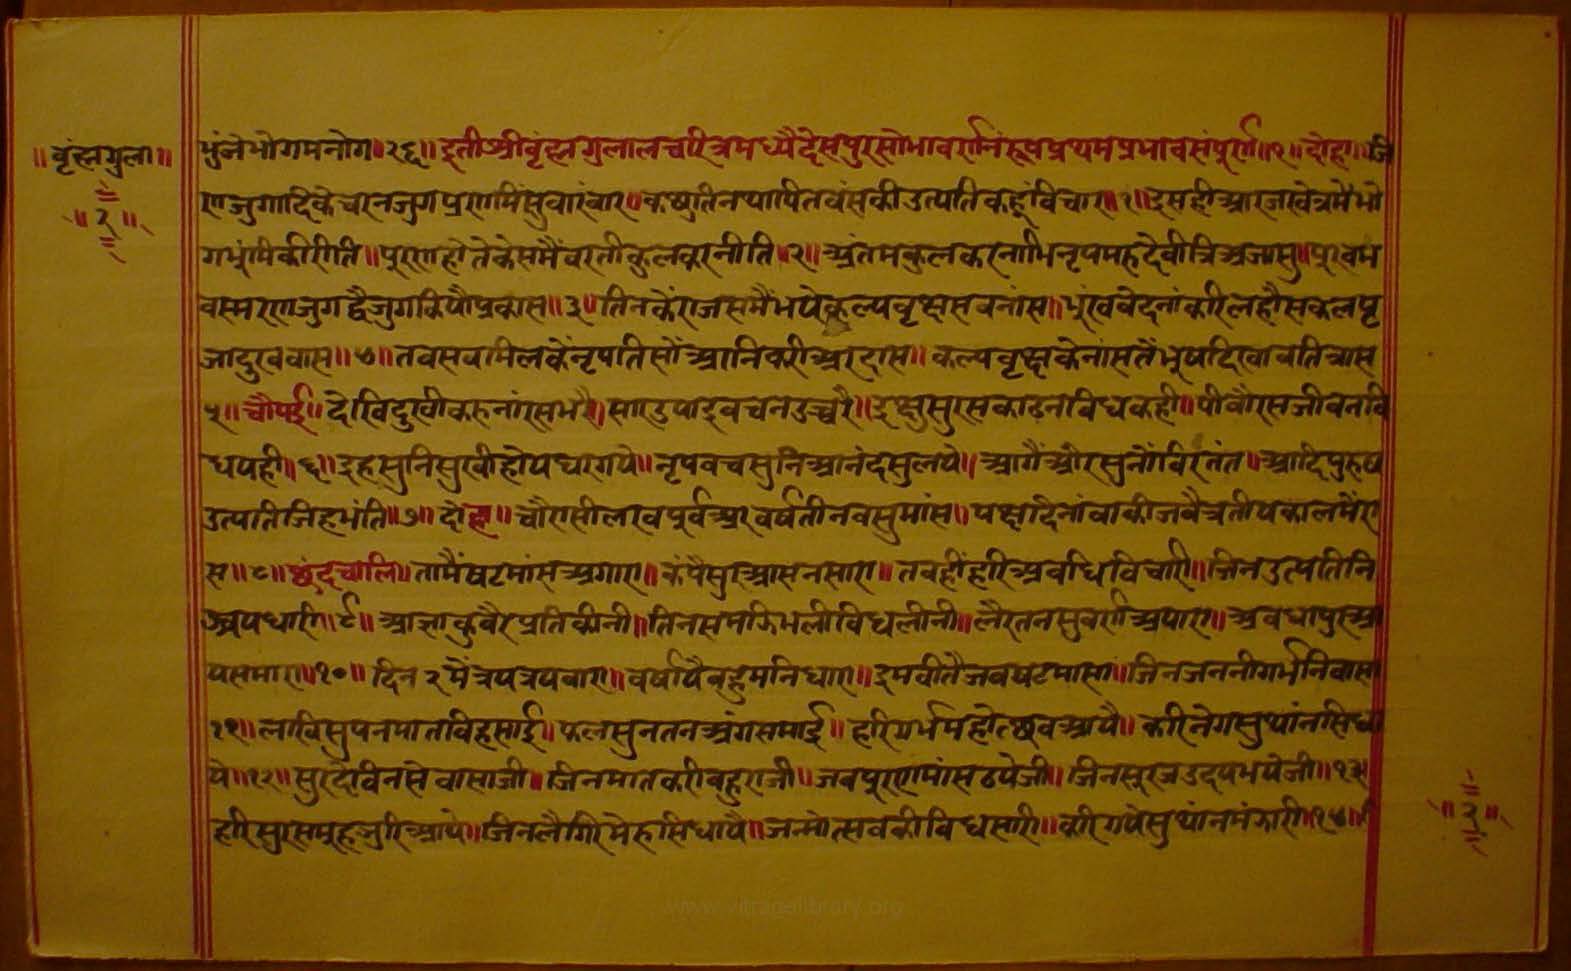 ॥वृंह्मगुला॥
॥२॥
भुंजेभोगमनोग॥२६॥इतीश्रीवृंह्मगुलालचरित्रमध्यैदेसपुरसोभावरर्णनंरूपप्रथमप्रभावसंपूर्ण॥१॥दोहा॥जि
राजुगादिकेचरनजुगप्ररामिंसुवारंवार॥कष्टातिनथापितवंसकीउत्पतिकहूंविचार॥१॥इसहीआरजखेत्रमैभो
गभूंमिकीरीति॥पुररणहोतेकेसमैंवरतीकुलकरनीति॥२॥अंतमकुलकरनाभिनृपमरुदेवीत्रिअजासु॥पूरवभ
वस्मररणजुगद्वैजुगकियौप्रकास॥३॥तिनकेंराजसमैंभयेकल्पवृक्षसवनांस॥भूंखवेदनांकरिलहौसकलपृ
जादुखवास॥४॥तवसवमिलकेंनृपतिसोंआनिकरीअरदास॥कल्पवृक्षकेनांसतैंभूषदिखावतित्रास
५॥चौपई॥देखिदुखीकरुनांरसभरै।सारउपाइवचनउच्चरै॥इक्षुसुरसकाढनविधकही॥पीवौरसजीवनवि
धयही॥६॥इहसुनिसुखीहोयघरगये॥नृपवचसुनिआनंदसुलये॥आगैंऔरसुनौंविरतंत॥आदिपुरुष
उत्पतिजिहभंति॥७॥दोहा॥चौरासीलखपूर्वअरवर्षतीनवसुमांस॥पक्षादिनांवाकीजवैत्रतीयकालमेंरा
स॥८॥छंदचालि॥तामैंषटमांसअगारा॥कंपैसुरआसनसारा॥तवहींहरिअवधिविचारी॥जिनउत्पतिनि
श्चयधारी॥९॥आज्ञाकुवैरप्रतिकीनी॥तिनसमझिभलीविधलीनी॥लैरतनसुवर्णअपारा॥अवधापुरआ
यसमारा॥१०॥दिन२मेंत्रयत्रयवारा॥वर्षावैवहुमनिधारा॥इमवीतेजवषटमासा॥जिनजननीगर्भनिवासा
११॥लखिसुपनमातविहसाई॥फलसुनतनअंगसमाई॥हरिगर्भमहोत्छवआयै॥करिनेगसुथांनसिधा
ये॥१२॥सुरदेविनसेवासाजी॥जिनमातकरीवहुराजी॥जवपुररणमांसठयेजी॥जिनसूरजउदयभयेजी॥१३॥
हरिसुरसमूहजुरिआये॥जिनलैगिरिमेरुसिधायै॥जन्मोत्सवकीविधसारी॥करिगयेसुथांनमंझारी॥१४॥
॥२॥
www.vitragelibrary.org